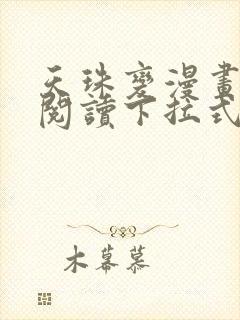 天珠變漫畫
閱讀下拉式
木幕慕